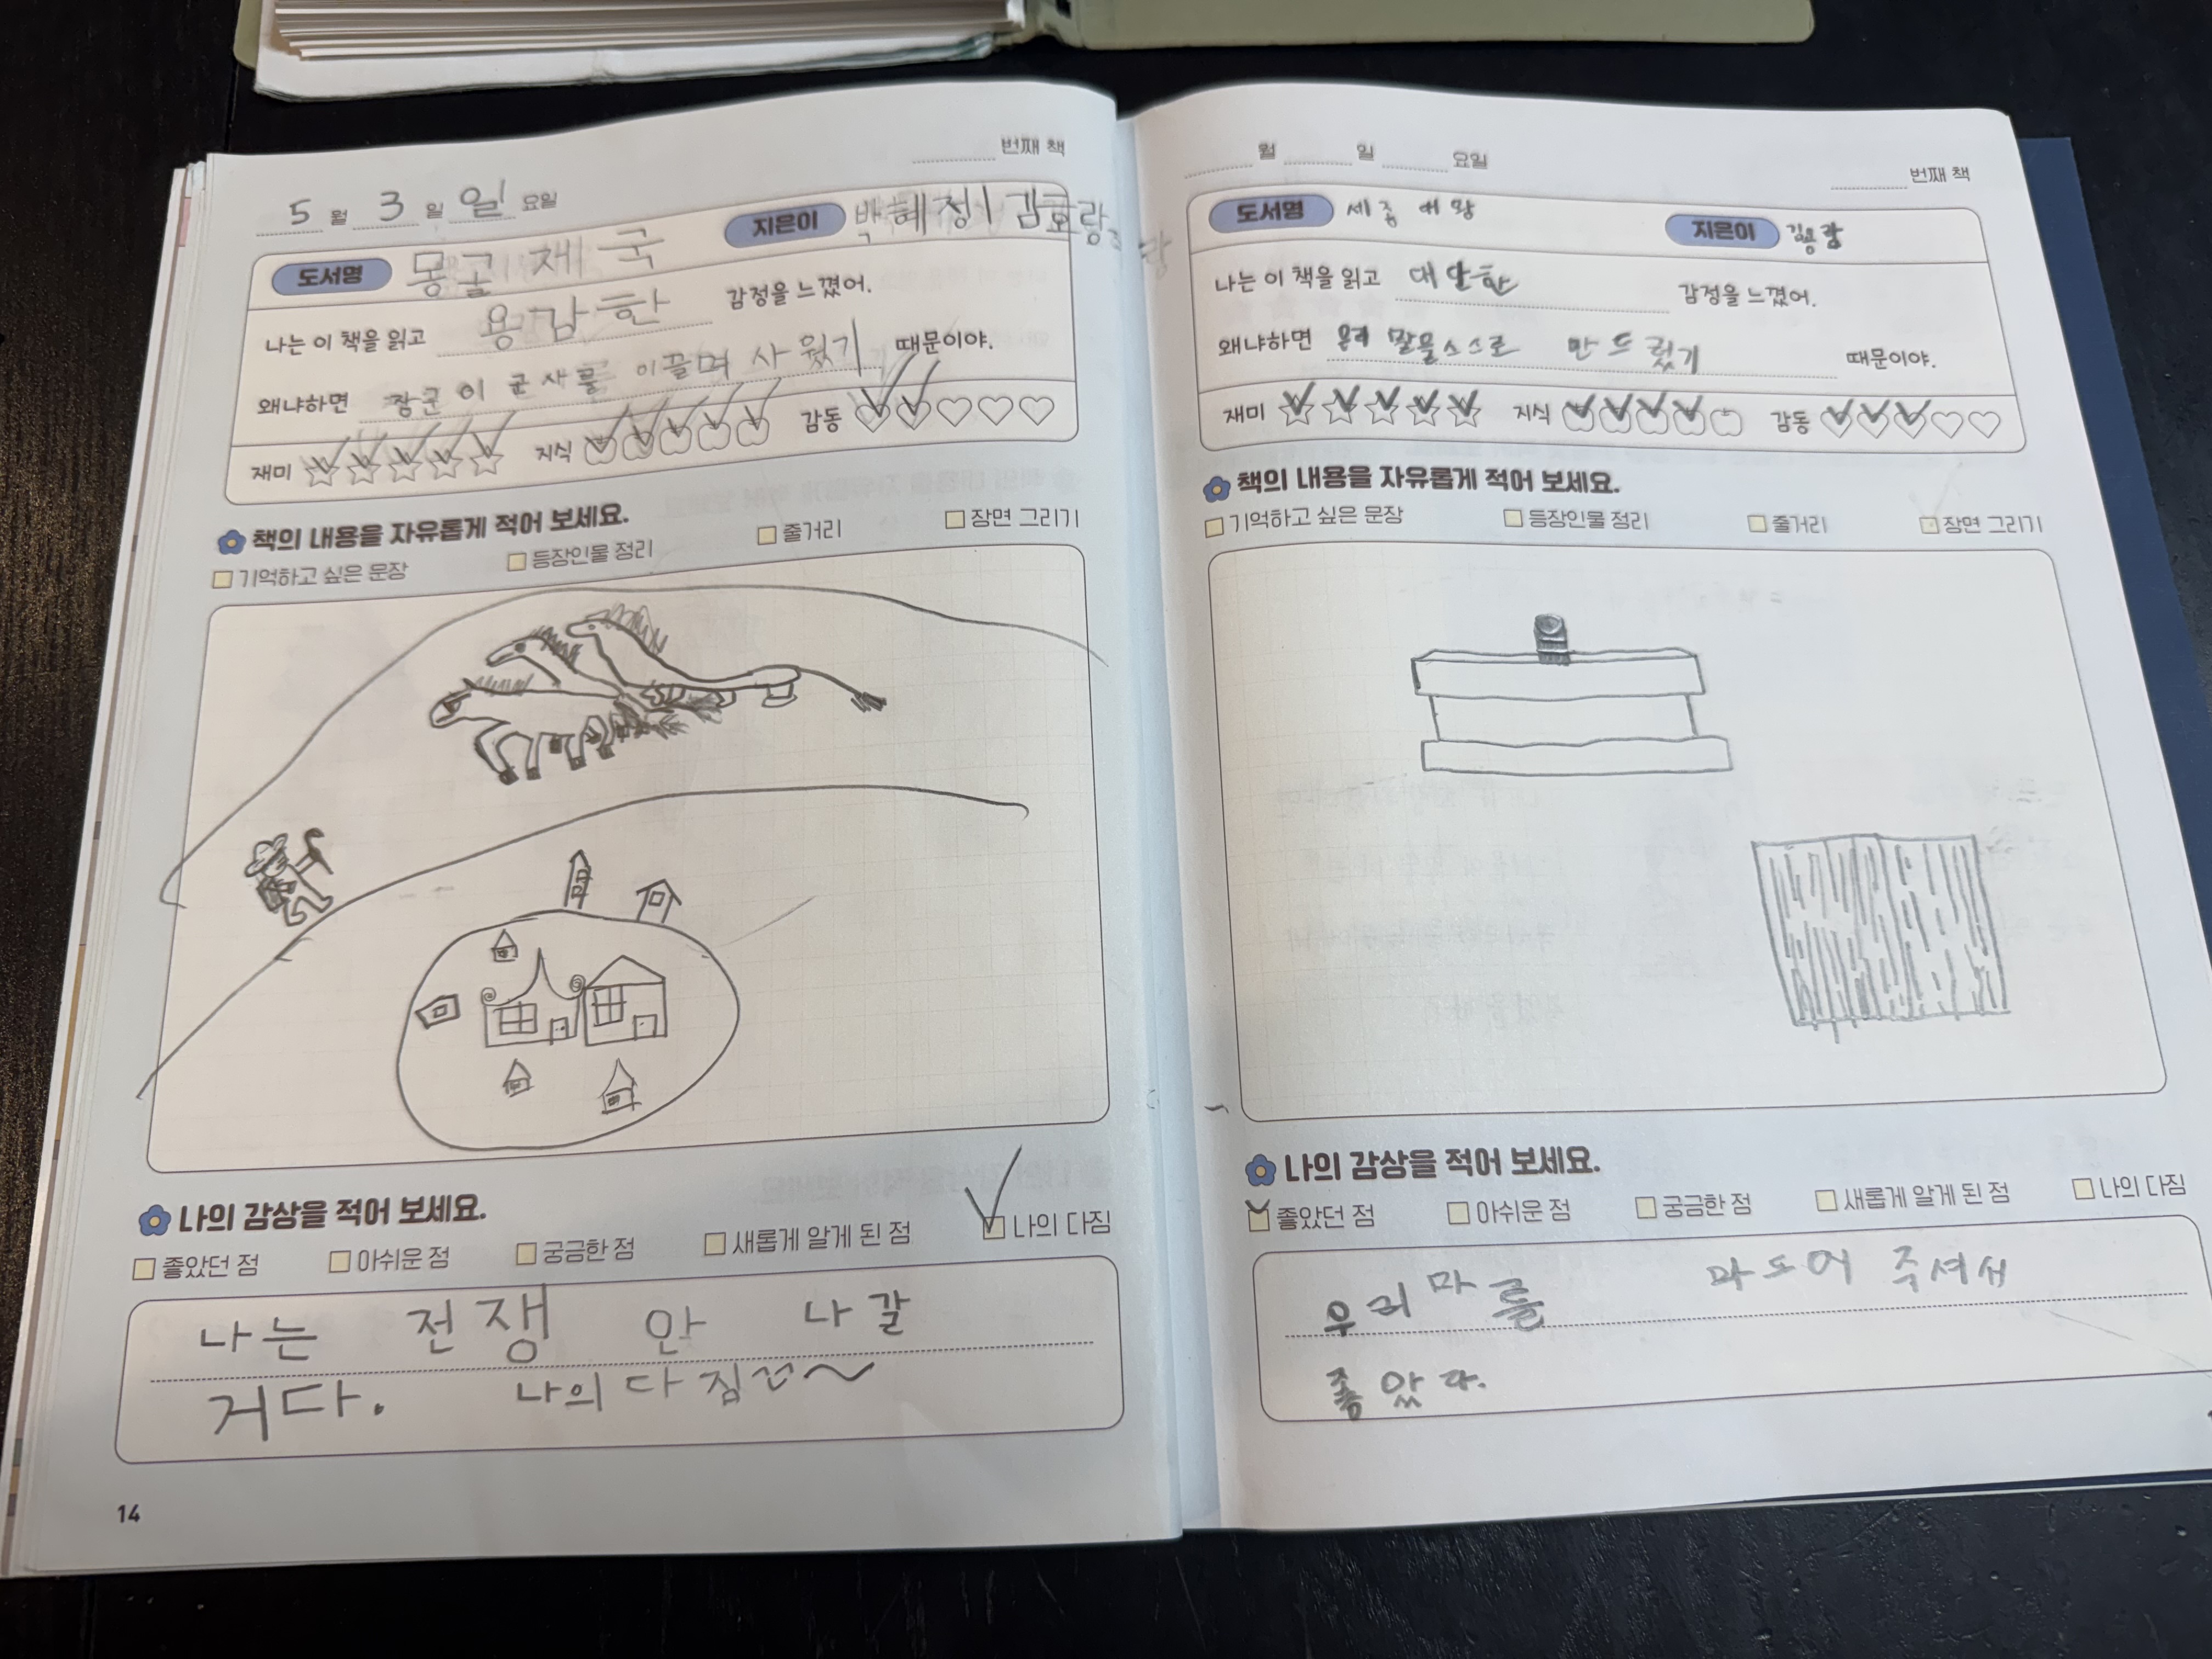 번째 책
5 월 3 일 일 요일
도서명 몽골 제국 지은이 박혜정 김효랑
나는 이 책을 읽고 용감한 감정을 느꼈어.
왜냐하면 장군이 군사를 이끌며 싸웠기 때문이야.
재미 지식 감동
책의 내용을 자유롭게 적어 보세요.
기억하고 싶은 문장 등장인물 정리 줄거리 장면 그리기
나의 감상을 적어 보세요.
좋았던 점 아쉬운 점 궁금한 점 새롭게 알게 된 점 나의 다짐
나는 전쟁 안 나갈
거다. 나의 다짐
14
월 일 요일
번째 책
도서명 세종 대왕 지은이
나는 이 책을 읽고 대단한 감정을 느꼈어.
왜냐하면 말을 스스로 만드렀기 때문이야.
재미 지식 감동
책의 내용을 자유롭게 적어 보세요.
기억하고 싶은 문장 등장인물 정리 줄거리 장면 그리기
나의 감상을 적어 보세요.
좋았던 점 아쉬운 점 궁금한 점 새롭게 알게 된 점 나의 다짐
우리 마를 주셔서
좋았다.